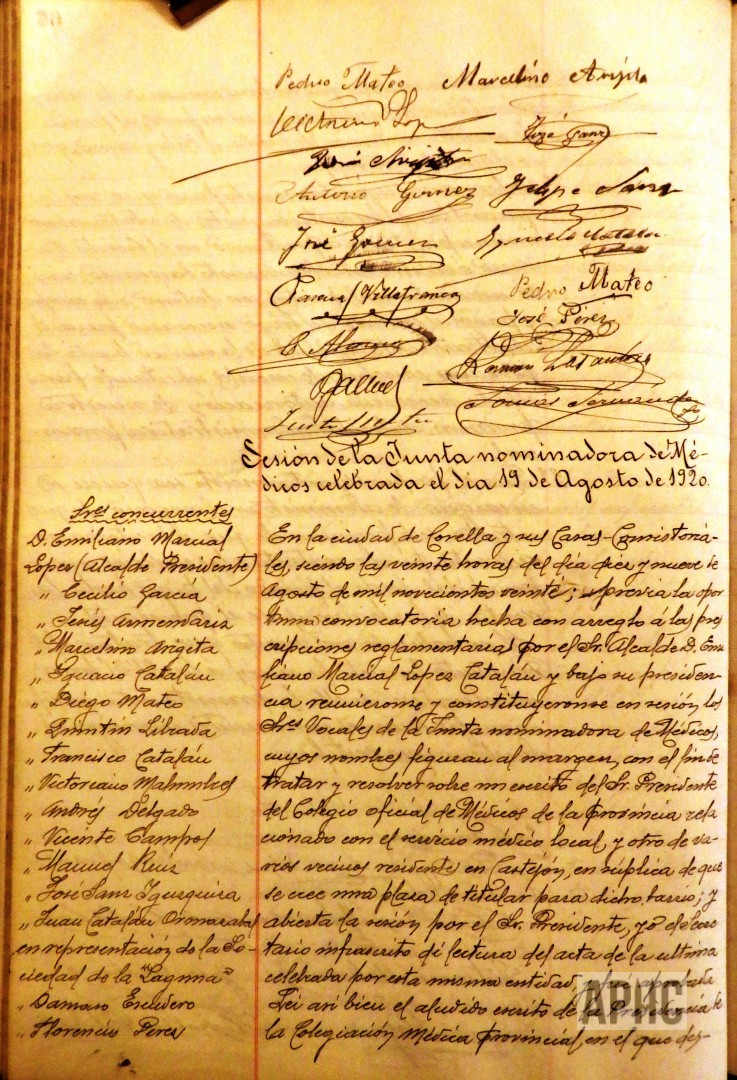 Pedro Mateo Marcelino Arigita
José Sanz
Antonio Gomez Felipe Sanz
José Gomez
Pascual Villafranca Pedro Mateo
José Pérez
Sesión de la Junta nominadora de Mé-
dicos celebrada el dia 19 de Agosto de 1920.
Sres concurrentes
D. Emiliano Marcial
Lopez (Alcalde Presidente)
" Cecilio García
" Jesús Armendariz
" Marcelino Arigita
" Ignacio Catalán
" Diego Mateo
" Quintin Librada
" Francisco Catalán
" Victoriano
" Andrés Delgado
" Vicente Campos
" Manuel Ruiz
" José Sanz Izurquiza
" Juan Catalán
en representación de la So-
ciedad de la "Laguna"
" Damaso Escudero
" Florencio Perez
En la ciudad de Corella y sus Casas-Consistoria-
les, siendo las veinte horas del día diez y nueve de
Agosto de mil novecientos veinte; previa la opor
tuna convocatoria hecha con arreglo á las pres
cripciones reglamentarias por el Sr. Alcalde D. Emi
liano Marcial Lopez Catalán y bajo su presiden-
cia reunieronse y constituyeronse en sesión los
Sres Vocales de la Junta nominadora de Médicos,
cuyos nombres figuran al margen, con el fin de
tratar y resolver sobre un escrito del Sr. Presidente
del Colegio oficial de Médicos de la provincia rela
cionado con el servicio médico local, y otro de va-
rios vecinos residente en Castejón, en súplica de que
se cree una plaza de titular para dicho barrio; y
abierta la sesión por el Sr. Presidente, yo el Secre
tario infrascrito dí lectura del acta de la ultima
celebrada por esta misma entidad, y fue aprobada
Leí asi bien el aludido escrito de la Presidencia de
la Colegiación Médica Provincial, en el que des-
АРИС